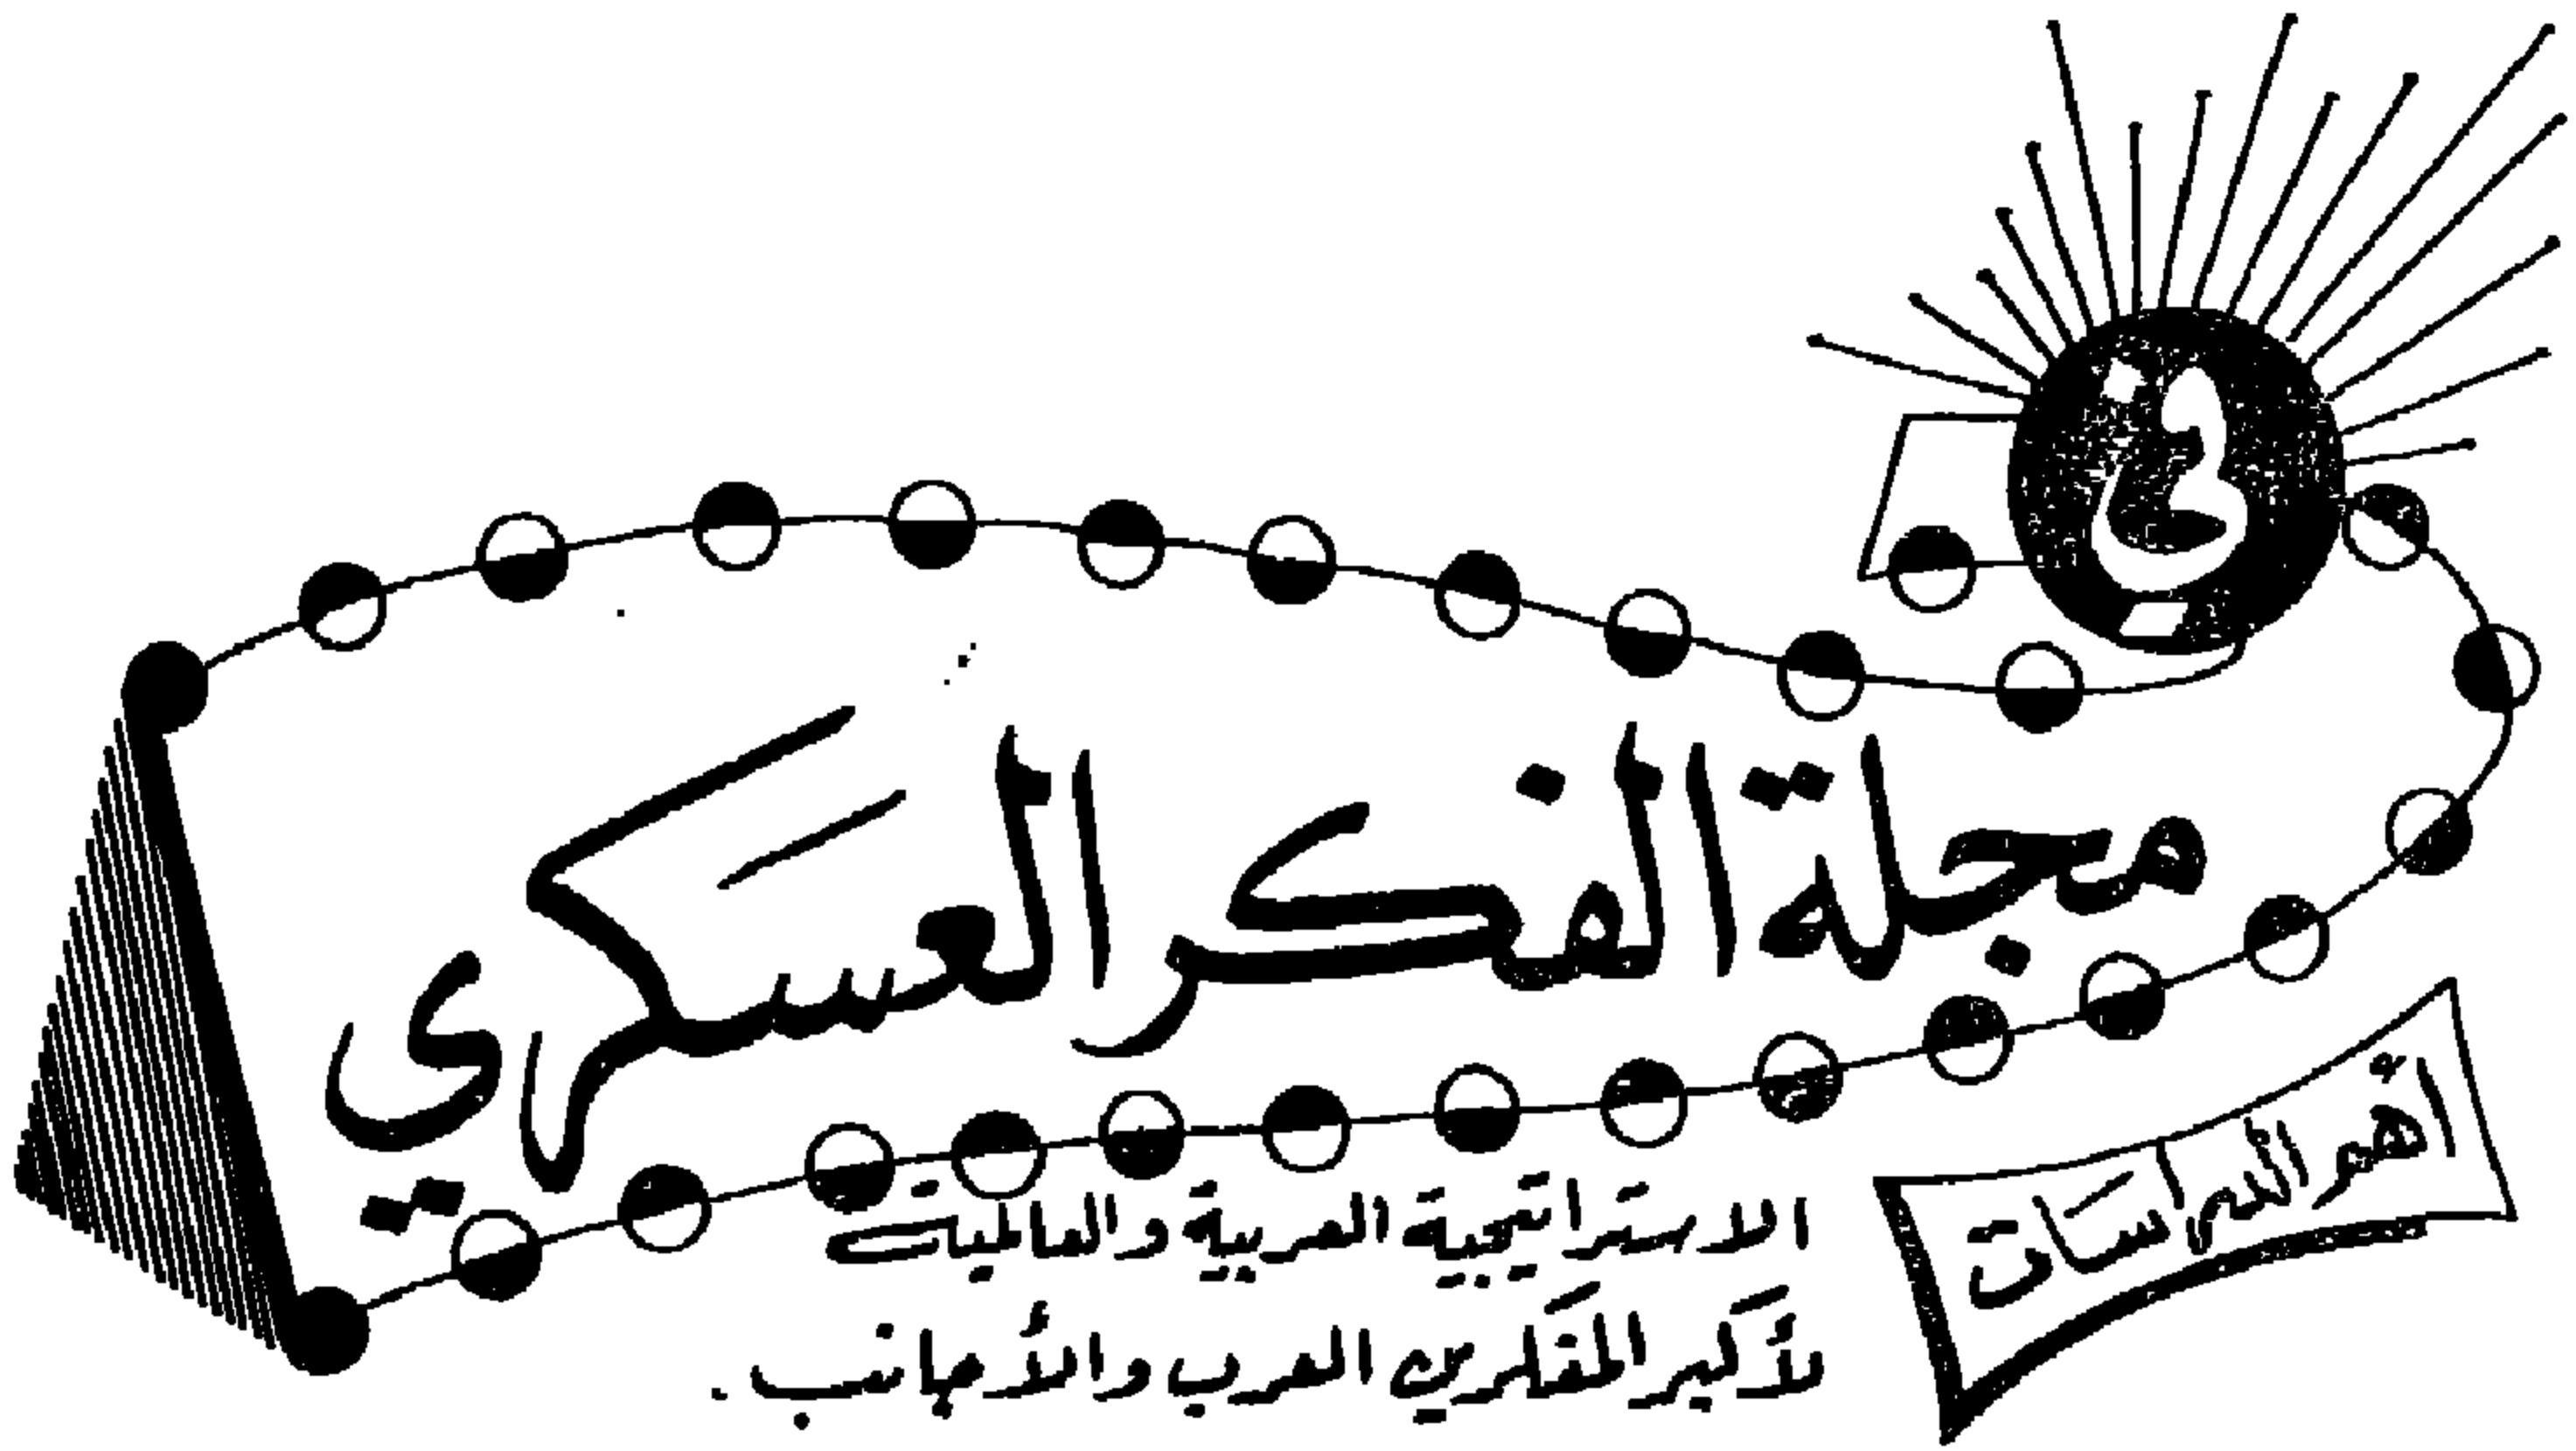 في
مجلة الفكر العسكري
أهم الدراسات
الاستراتيجية العربية والعالمية
لأكبر المفكرين العرب والأجانب .